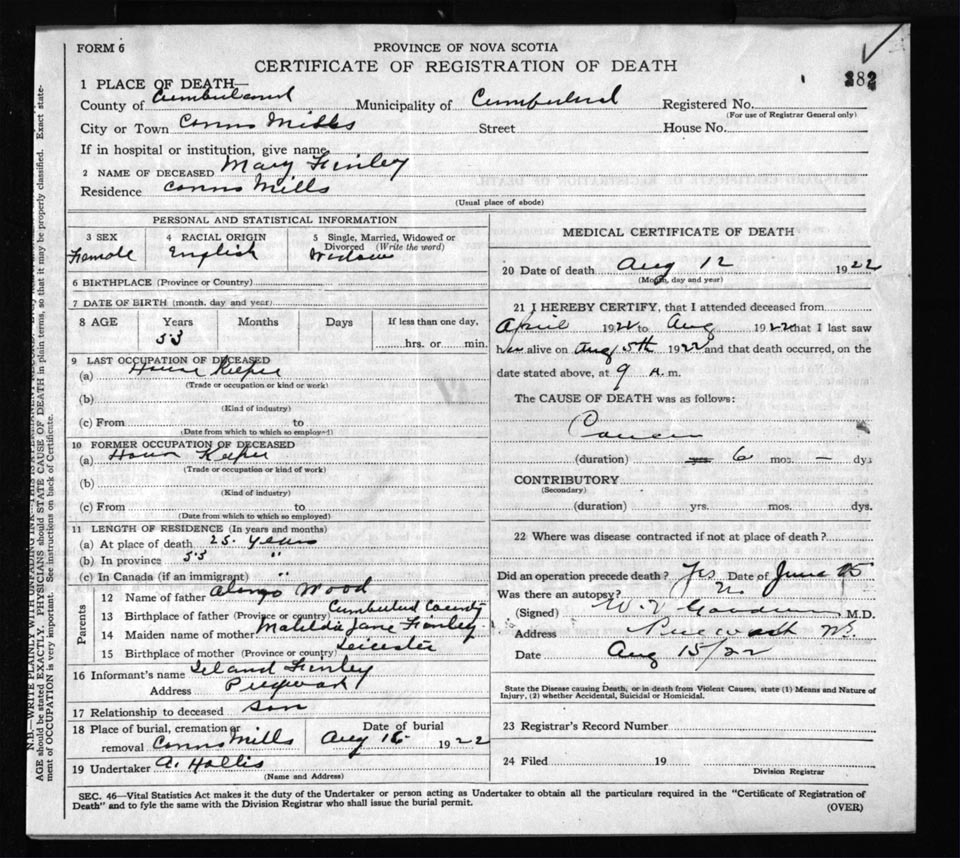 FORM 6
PROVINCE OF NOVA SCOTIA
CERTIFICATE OF REGISTRATION OF DEATH
282
1 PLACE OF DEATH—
County of Cumberland Municipality of Cumberland Registered No.
(For use of Registrar General only)
City or Town Conns Mills Street House No.
If in hospital or institution, give name
2 NAME OF DECEASED Mary Finley
Residence Conns Mills
(Usual place of abode)
PERSONAL AND STATISTICAL INFORMATION
3 SEX 4 RACIAL ORIGIN 5 Single, Married, Widowed or Divorced (Write the word)
Female English Widow
6 BIRTHPLACE (Province or Country)
7 DATE OF BIRTH (month, day and year)
8 AGE Years Months Days If less than one day,
53 hrs. or min.
9 LAST OCCUPATION OF DECEASED
(a) House Keeper
(Trade or occupation or kind of work)
(b)
(Kind of industry)
(c) From to
(Date from which to which so employed)
10 FORMER OCCUPATION OF DECEASED
(a) House Keeper
(Trade or occupation or kind of work)
(b)
(Kind of industry)
(c) From to
(Date from which to which so employed)
11 LENGTH OF RESIDENCE (In years and months)
(a) At place of death 25 years
(b) In province 53 "
(c) In Canada (if an immigrant) "
Parents
12 Name of father Alonzo Wood
13 Birthplace of father (Province or country) Cumberland County
14 Maiden name of mother Matilda Jane Finley
15 Birthplace of mother (Province or country) Leicester
16 Informant's name Leland Finley
Address Pugwash
17 Relationship to deceased son
18 Place of burial, cremation or removal Conns Mills
Date of burial Aug 1922
19 Undertaker A. Hollis
(Name and Address)
MEDICAL CERTIFICATE OF DEATH
20 Date of death Aug 12 1922
(Month, day and year)
21 I HEREBY CERTIFY, that I attended deceased from
April 1922 to Aug 1922 that I last saw
her alive on Aug 5th 1922 and that death occurred, on the
date stated above, at 9 A. m.
The CAUSE OF DEATH was as follows:
Cancer
(duration) yrs. 6 mos. — dys
CONTRIBUTORY
(Secondary)
(duration) yrs. mos. dys.
22 Where was disease contracted if not at place of death?
Did an operation precede death? Yes Date of June
Was there an autopsy? No
(Signed) M.D.
Address Pugwash N.S.
Date Aug 15/22
State the Disease causing Death, or in death from Violent Causes, state (1) Means and Nature of
Injury, (2) whether Accidental, Suicidal or Homicidal.
23 Registrar's Record Number
24 Filed 19
Division Registrar
SEC. 46—Vital Statistics Act makes it the duty of the Undertaker or person acting as Undertaker to obtain all the particulars required in the "Certificate of Registration of
Death" and to fyle the same with the Division Registrar who shall issue the burial permit.
(OVER)
AGE should be stated EXACTLY. PHYSICIANS should STATE CAUSE OF DEATH in plain terms, so that it may be properly classified. Exact state-
ment of OCCUPATION is very important. See instructions on back of Certificate.